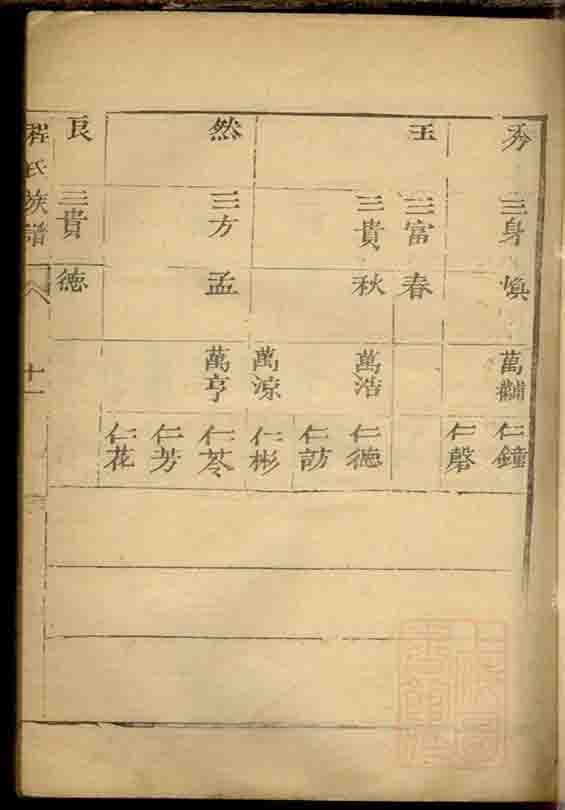 秀 三身 煥 萬黼 仁鐘
仁磬
玉 三富 春
三貴 秋 萬浩 仁德
仁訪
萬涼 仁彬
然 三方 孟 萬亨 仁苓
仁芳
仁花
良 三貴 德
程氏族譜 八 十一